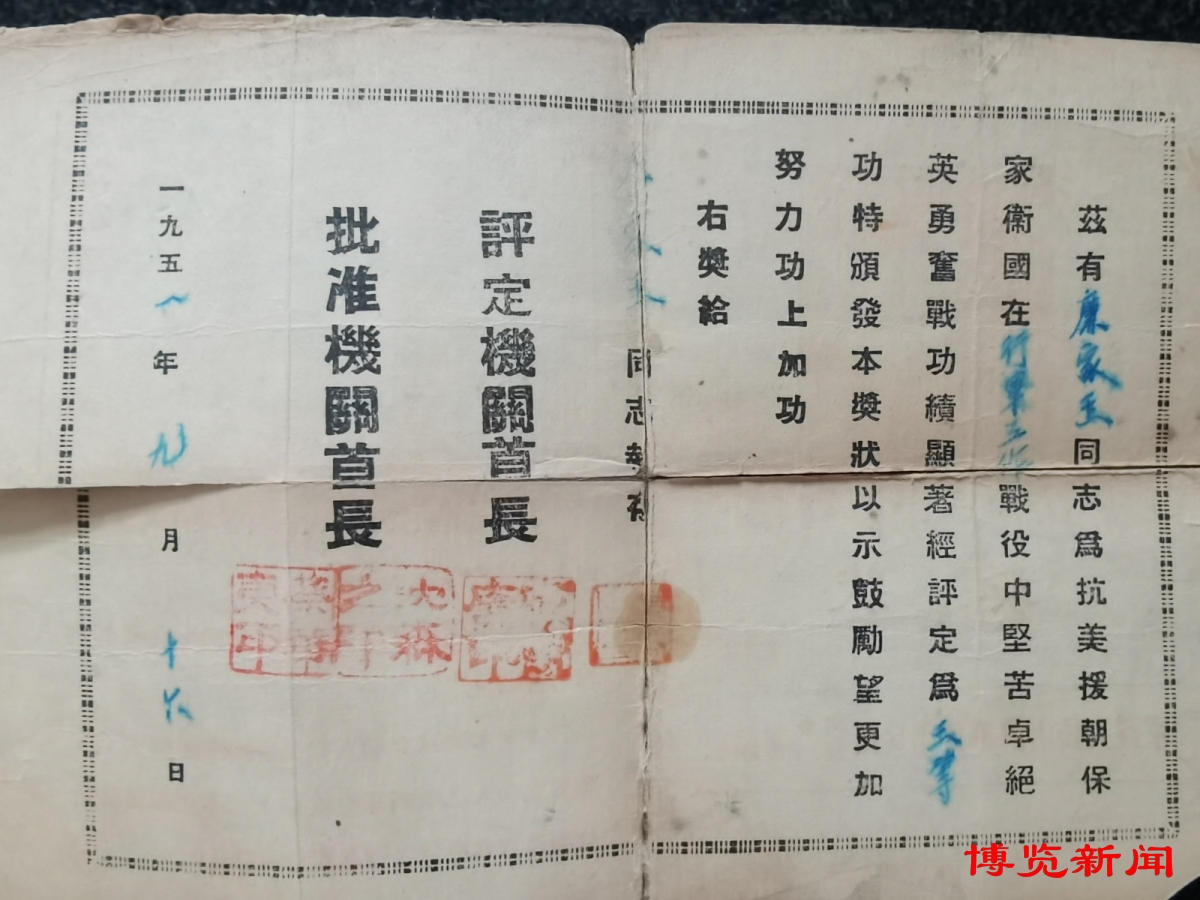 茲有廉家玉同志爲抗美援朝保
家衛國在行軍工作戰役中堅苦卓絕
英勇奮戰功績顯著經評定爲三等
功特頒發本獎狀以示鼓勵望更加
努力功上加功
右獎給
同志執存
評定機關首長
批准機關首長
一九五一年九月十六日
博览新闻